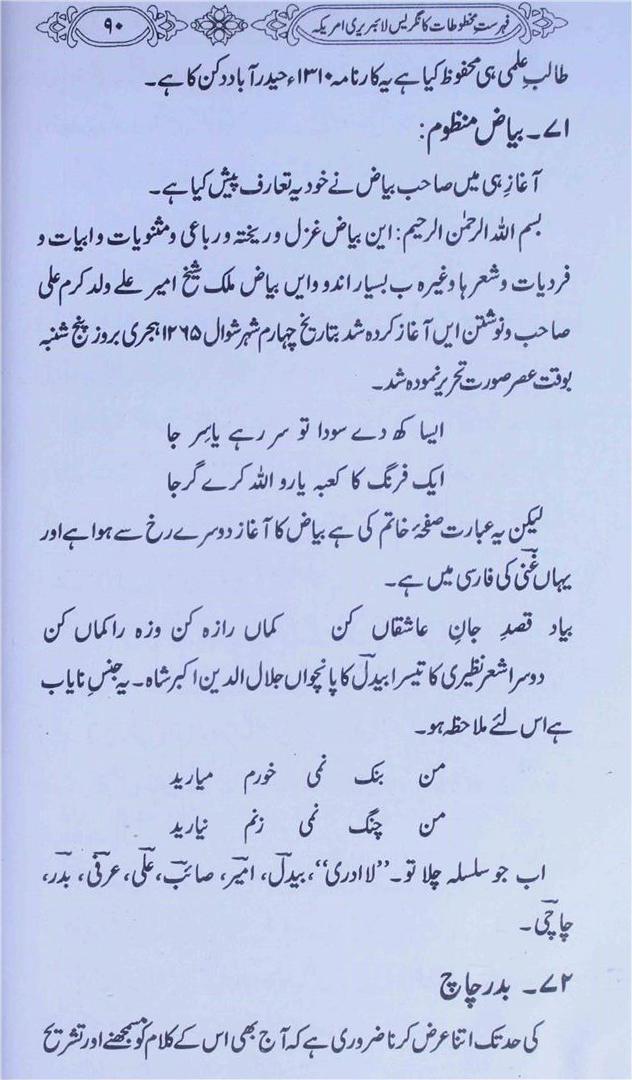 فہرستِ مخطوطات کانگریس لائبریری امریکہ
۹۰
طالبِ علمی ہی محفوظ کیا ہے یہ کارنامہ ۱۳۱۰ء حیدرآباد دکن کا ہے۔
۷۱۔ بیاض منظوم:
آغازِ ہی میں صاحب بیاض نے خود یہ تعارف پیش کیا ہے۔
بسم اللہ الرحمٰن الرحیم: این بیاض غزل و ریختہ و رباعی و مثنویات و ابیات و
فردیات و شعر ہا وغیرہ ب بسیار اند و وایں بیاض ملک شیخ امیر علے ولد کرم علی
صاحب و نوشتن ایں آغاز کردہ شد بتاریخ چہارم شہر شوال ۱۲۶۵ ہجری بروز پنج شنبہ
بوقت عصر صورت تحریر نمودہ شد۔
ایسا کھ دے سودا تو سر رہے یا سر جا
ایک فرنگ کا کعبہ یارو اللہ کرے گر جا
لیکن یہ عبارت صفحۂ خاتم کی ہے بیاض کا آغاز دوسرے رخ سے ہوا ہے اور
یہاں غنی کی فارسی میں ہے۔
بیاد قصدِ جانِ عاشقاں کن کماں رازہ کن وزہ را کماں کن
دوسرا شعر نظیری کا تیسرا بیدل کا پانچواں جلال الدین اکبر شاہ۔ یہ جنسِ نایاب
ہے اس لئے ملاحظہ ہو۔
من بنک نمی خورم میارید
من چنگ نمی زنم نیارید
اب جو سلسلہ چلا تو۔ ”لا ادری“، بیدل، امیر، صائب، علی، عرفی، بدر،
چاچی۔
۷۲۔ بدر چاچ
کی حد تک اتنا عرض کرنا ضروری ہے کہ آج بھی اس کے کلام کو سمجھنے اور تشریح